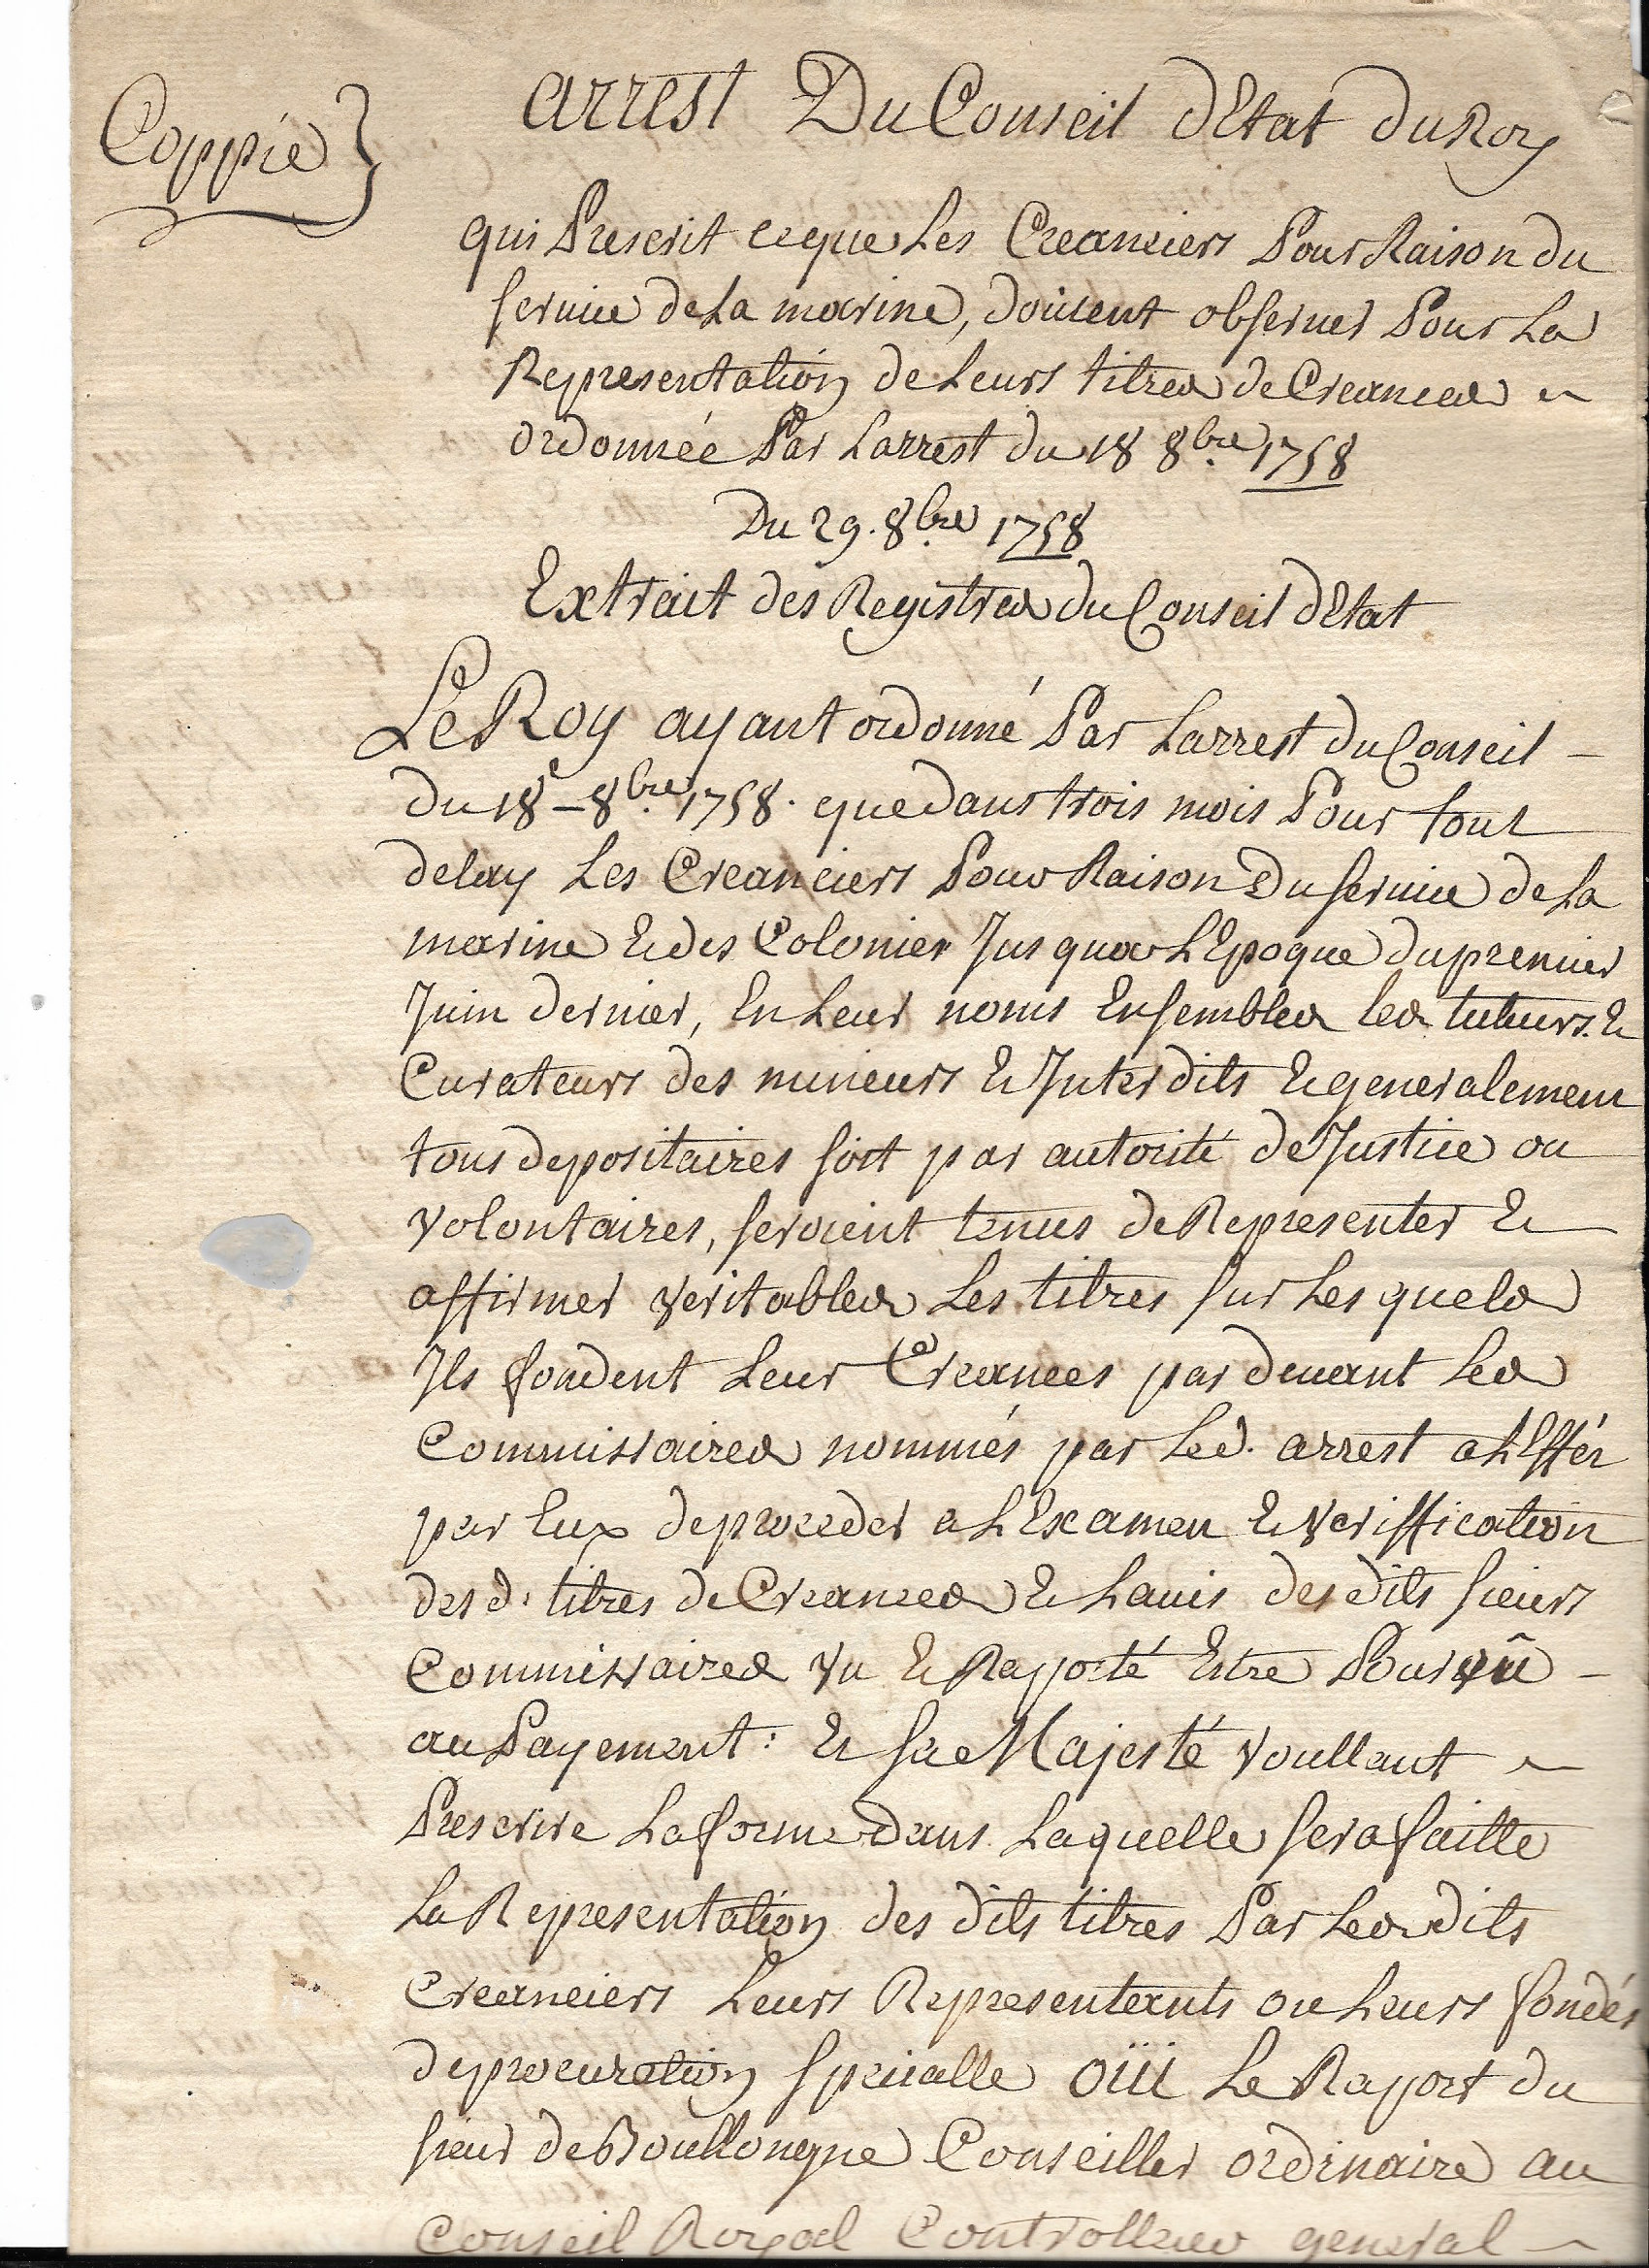 Coppie
arrest Du Conseil dEtat du Roy
qui Prescrit ceque Les Creanciers Pour Raison du
service deLa marine, doivent observer Pour La
Representation de Leurs titres de Creances
ordonnée Par Larrest du 18 8bre 1758
Du 29. 8bre 1758
Extrait des Registres du Conseil dEtat
Le Roy ayant ordonné Par Larrest du Conseil -
du 18 - 8bre 1758. que dans trois mois Pour tout
delay Les Creanciers Pour Raison Du service de La
marine & des Colonies Jusqua LEpoque du premier
Juin dernier, En Leur noms Ensembles les tuteurs. &
Curateurs des mineurs & Interdits & generalement
tous depositaires soit par autorité de Justice ou
volontaires, seroient tenus de Representer &
affirmer veritables Les titres sur Les quels
Ils fondent Leur Creances par devant Les
Commissaires nommés par Led. arrest a LEffet
par Eux de proceder a LExamen & veriffication
des d. titres de Creances & Lavis des dits sieurs
Commissaires vu & Raporté Estre Pourvû -
au Payement: & sa Majesté voullant
Prescrire La forme dans Laquelle sera faitte
La Representation des dits titres Par Les dits
Creanciers Leurs Representants ou Leurs fondés
de procuration specialle oüi Le Raport du
sieur de Boullongne Conseiller ordinaire au
Conseil Royal Controlleur general -